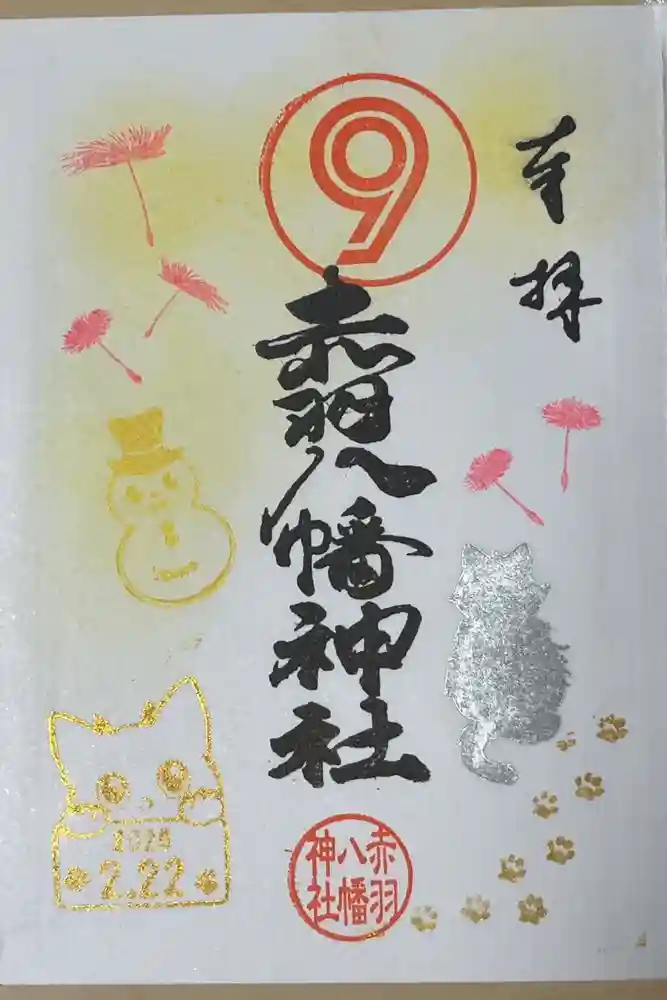 奉拝
9
赤羽八幡神社
2024
2.22
赤羽
八幡
神社